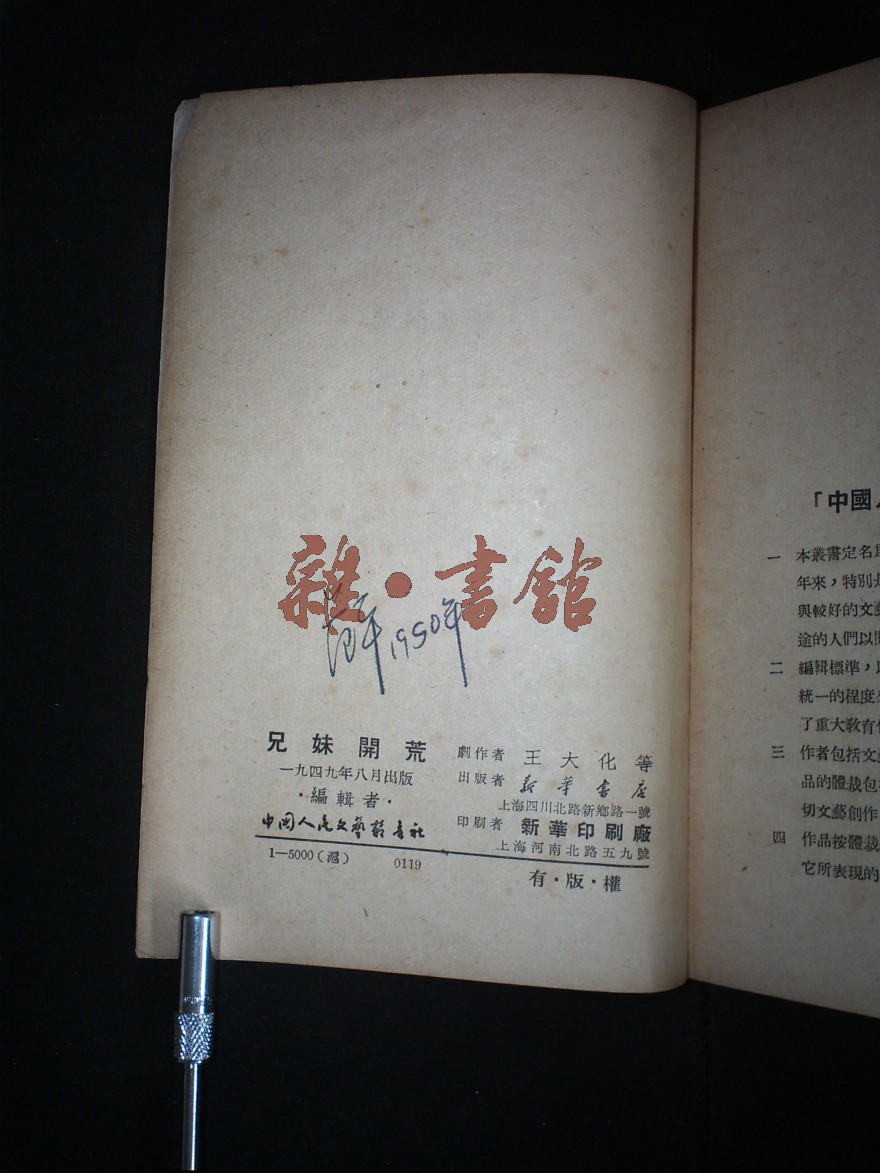 雜·書館
1950年
兄妹開荒
一九四九年八月出版
·編輯者·
中國人民文藝叢書社
1—5000(滬) 0119
劇作者 王大化等
出版者 新華書店
上海四川北路新鄉路一號
印刷者 新華印刷廠
上海河南北路五九號
有·版·權
「中國
一 本叢書定名爲
年來，特別是
與較好的文藝
途的人們以閱
二 編輯標準，以
統一的程度
了重大教育
三 作者包括文
品的體裁包
切文藝創作
四 作品按體裁
它所表現的